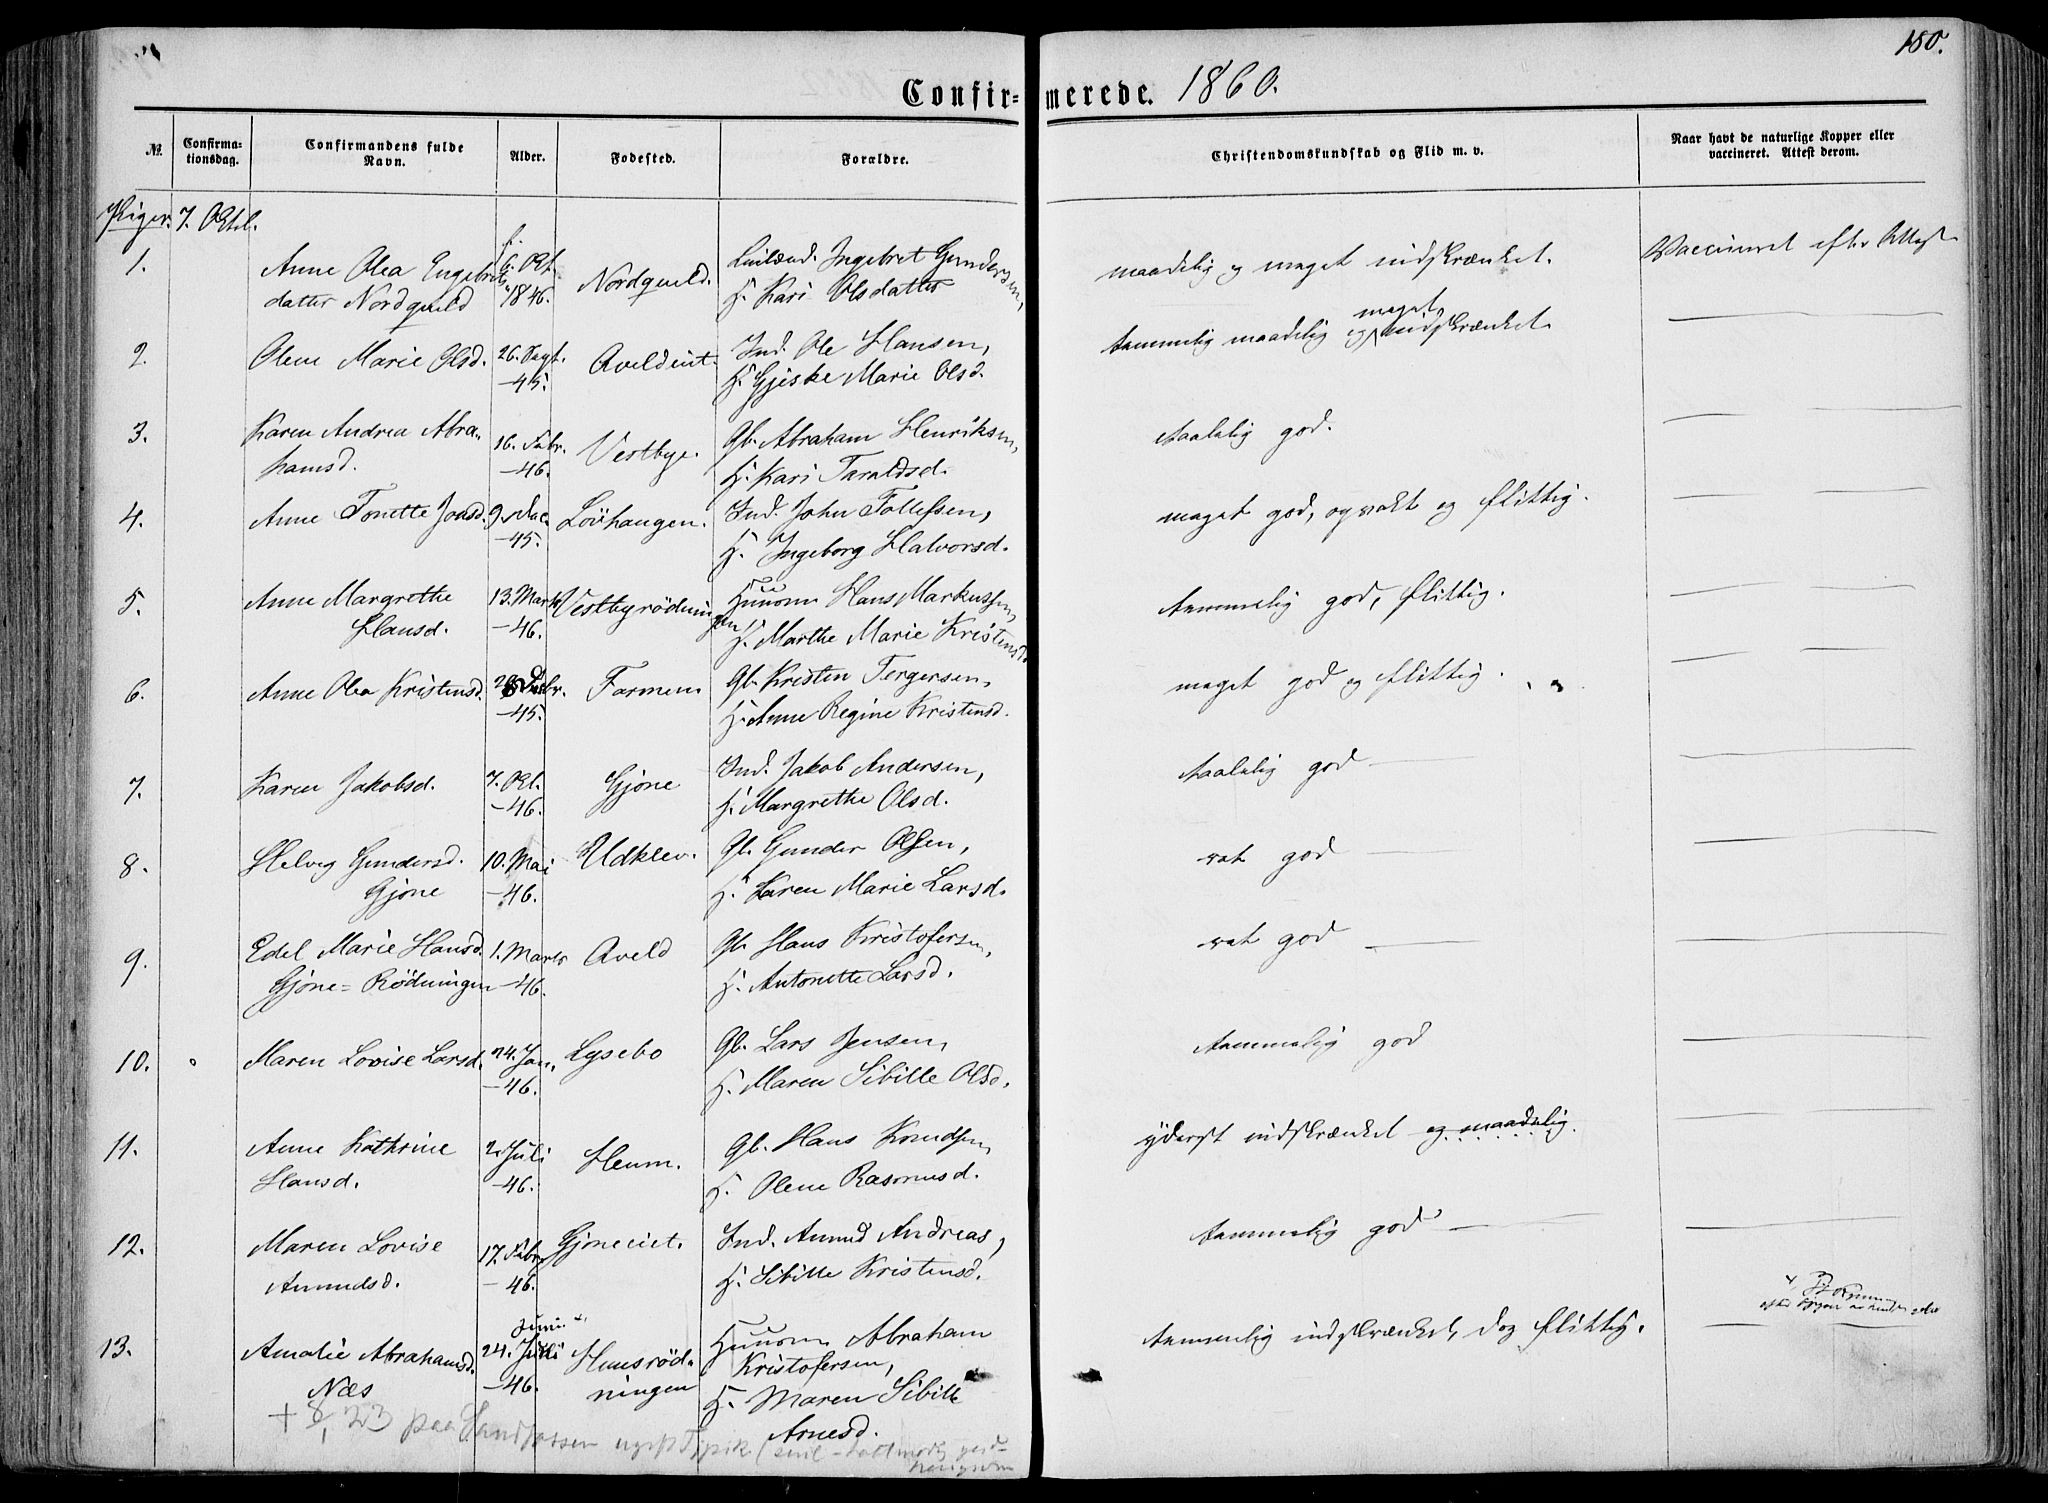 180.
Confirmerede. 1860.
No. Confirmationsdag. Confirmandens fulde Navn. Alder. Fodested. Forældre. Christendomskundskab og Flid m. v. Naar havt de naturlige Kopper eller vaccineret. Attest derom.
Piger. 7. Oktb.
1. Anne Olea Engebrets- Okt. Nordqueld. Ingebret Gundersen, maadelig og meget indskrænket. Vaccineret efter Attest
datter Nordqueld 1846. H. Kari Olsdatter
2. Olene Marie Olsd. 26. Sept. Aveldeiet. Ind. Ole Hansen, temmelig maadelig og meget indskrænket
-45. H. Gjiske Marie Olsd.
3. Karen Andrea Abra- 16. Febr. Vestbye. Gb. Abraham Henriksen, taalelig god.
hamsd. -46. H. Kari Taraldsd.
4. Anne Tonette Jonsd. 9. Dec. Løvhaugen. Ind. John Tollefsen, meget god, opvakt og flittig.
-45. H. Ingeborg Halvorsd.
5. Anne Margrethe 13. Marts Vestbyrødningen Huusm. Hans Markussen, temmelig god, flittig.
Hansd. -46. H. Marthe Marie Kristensd.
6. Anne Olea Kristensd. Farmen Gb. Kristen Tergersen, meget god og flittig.
-45. H. Anne Regine Kristensd.
7. Karen Jakobsd. 7. Okt. Gjøne Ind. Jakob Andersen, taalelig god
-46. H. Margrethe Olsd.
8. Helvig Gundersd. 10. Mai Udklev. Gb. Gunder Olsen, ret god
Gjøne -46. H. Karen Marie Larsd.
9. Edel Marie Hansd. 1. Marts Aveld Gb. Hans Kristofersen, ret god
Gjøne=Rødningen -46. H. Antonette Larsd.
10. Maren Lovise Larsd. 24. Jan. Lysebo Gb. Lars Jensen, temmelig god
-46. H. Maren Sibille Olsd.
11. Anne Kathrine 2. Juli Heum. Gb. Hans Knudsen yderst indskrænket og maadelig.
Hansd. -46. H. Olene Rasmusd.
12. Maren Lovise 17. Febr. Gjøneeiet. Ind. Amund Andreas, temmelig god
Amundsd. -46. H. Sibille Kristensd.
13. Amalie Abrahamsd. 24. Juni Huusrød- Huusm. Abraham temmelig indskrænket, dog flittig.
Næs -46. ningen Kristofersen,
H. Maren Sibille
Arnesd.
+ 8/1 23 paa